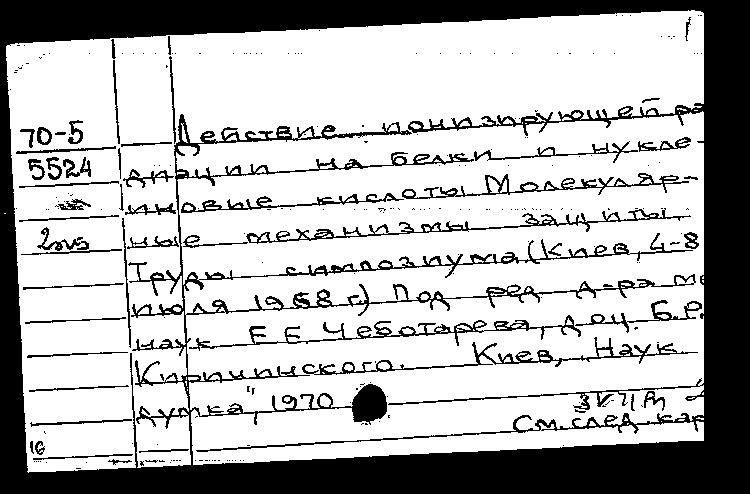 70-5
5524
2 экз
Действие ионизирующей ра
диации на белки и нукле-
иновые кислоты Молекуляр-
ные механизмы защиты.
Труды симпозиума (Киев, 4-8
июля 1968 г.) Под ред д-ра ме
наук Е Е. Чеботарева, доц. Б.Р.
Кирпичинского. Киев, Наук
думка", 1970
См. след. кар
16